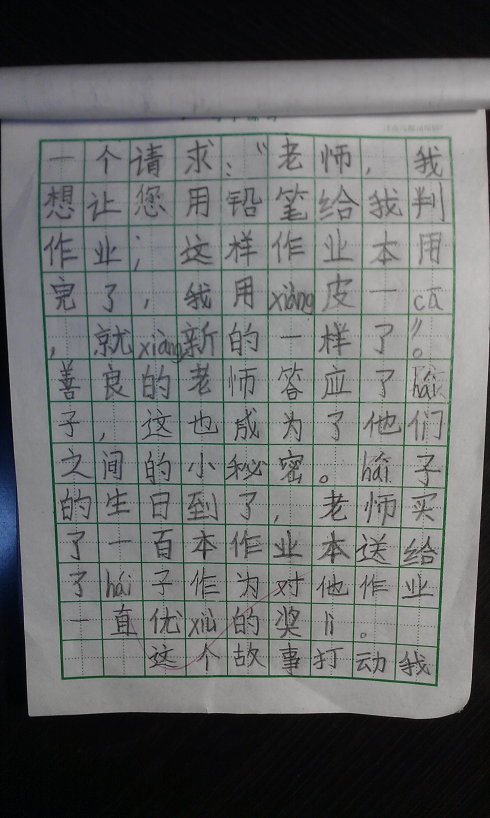 一个请求：“老师，我
想让您用铅笔给我判
作业；这样作业本用
完了，我用xiàng皮一cā
，就xiàng新的一样了”。
善良的老师答应了hái
子，这也成为了他们
之间的小秘密。hái子
的生日到了，老师买
了一百本作业本送给
了hái子作为对他作业
一直优xiù的奖lì。
这个故事打动我